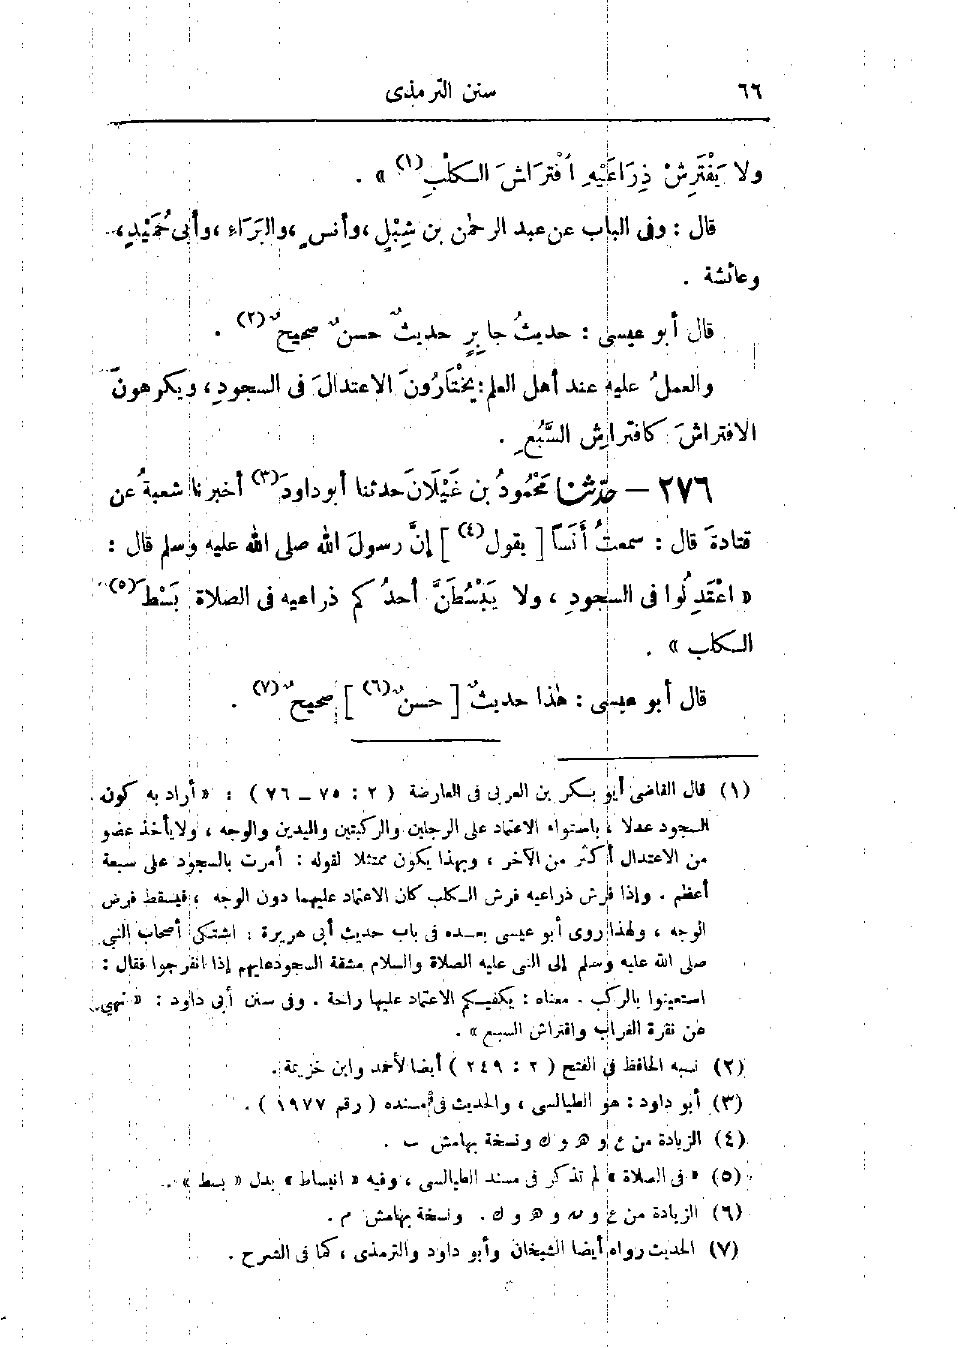 ٦٦ سنن الترمذى
ولا يَفْتَرِشْ ذِرَاعَيْهِ افْتِرَاشَ الكَلْبِ(١) » .
قال : وفى الباب عن عبد الرحمٰن بن شِبْلٍ ، وأنسٍ ، والبَرَاءِ ، وأبى حُمَيْدٍ ،
وعائشة .
قال أبو عيسى : حديثُ جابِرٍ حديثٌ حسنٌ صحيحٌ(٢) .
والعملُ عليه عند أهل العلم : يَخْتَارُونَ الاعتدالَ فى السجودِ ، ويكرهونَ
الافتراشَ كافتراشِ السَّبُعِ .
٢٧٦ — حدّثنا مَحْمُودُ بن غَيْلَانَ حدثنا أبو داودَ(٣) أخبرنا شعبةُ عن
قتادةَ قال : سمعتُ أَنَساً [ يقول(٤) ] إنَّ رسولَ الله صلى الله عليه وسلم قال :
« اعْتَدِلُوا فى السجودِ ، ولا يَبْسُطَنَّ أحدُكم ذراعيه فى الصلاة بَسْطَ(٥)
الكلب » .
قال أبو عيسى : هٰذا حديثٌ [ حسنٌ(٦) ] صحيحٌ(٧) .
(١) قال القاضى أبو بكر بن العربى فى العارضة ( ٢ : ٧٥ — ٧٦ ) : « أراد به كون
السجود عدلا ، باستواء الاعتماد على الرجلين والركبتين واليدين والوجه ، ولا يأخذ عضو
من الاعتدال أكثر من الآخر ، وبهذا يكون ممتثلا لقوله : أمرت بالسجود على سبعة
أعظم . وإذا فرش ذراعيه فرش الكلب كان الاعتماد عليهما دون الوجه ، فيسقط فرض
الوجه ، ولهذا روى أبو عيسى بعده فى باب حديث أبى هريرة : اشتكى أصحاب النبى
صلى الله عليه وسلم إلى النبى عليه الصلاة والسلام مشقة السجود عليهم إذا انفرجوا فقال :
استعينوا بالركب . معناه : يكفيكم الاعتماد عليها راحة . وفى سنن أبى داود : « نهى
عن نقرة الغراب وافتراش السبع » .
(٢) نسبه الحافظ فى الفتح ( ٢ : ٢٤٩ ) أيضا لأحمد وابن خزيمة .
(٣) أبو داود : هو الطيالسى ، والحديث فى مسنده ( رقم ١٩٧٧ ) .
(٤) الزيادة من ع و ھ و ك ونسخة بهامش ب .
(٥) « فى الصلاة » لم تذكر فى مسند الطيالسى ، وفيه « انبساط » بدل « بسط » .
(٦) الزيادة من ع و ـه و ھ و ك . ونسخة بهامش م .
(٧) الحديث رواه أيضا الشيخان وأبو داود والترمذى ، كما فى الشرح .